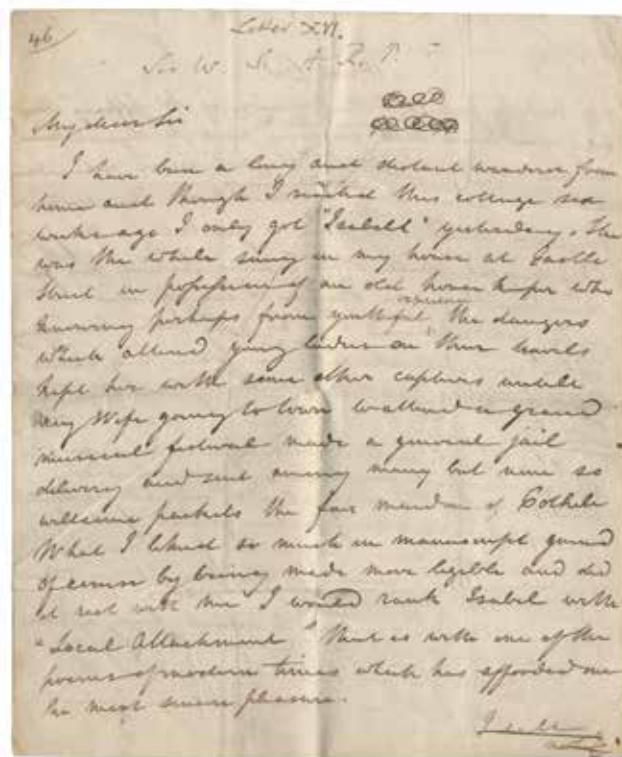 46
Letter XVI.
Sir W. S. to R. P.
My dear Sir
I have been a long and distant wanderer from
home and though I reached this cottage six
weeks ago I only got "Isabell" yesterday. She
was the while snug in my house at Castle
Street in possession of an old house keeper who
knowing perhaps from youthful experience the dangers
which attend young ladies on their travels
kept her with some other captives untill
my Wife going to town to attend a grand
musical festival made a general jail
delivery and sent among many but none so
wellcome packets the fair maiden of Cothele
What I liked so much in manuscript gaind
of course by being made more legible and did
it rest with me I would rank Isabel with
"Local Attachment" that is with one of the
poems of modern times which has afforded me
the most sincere pleasure.